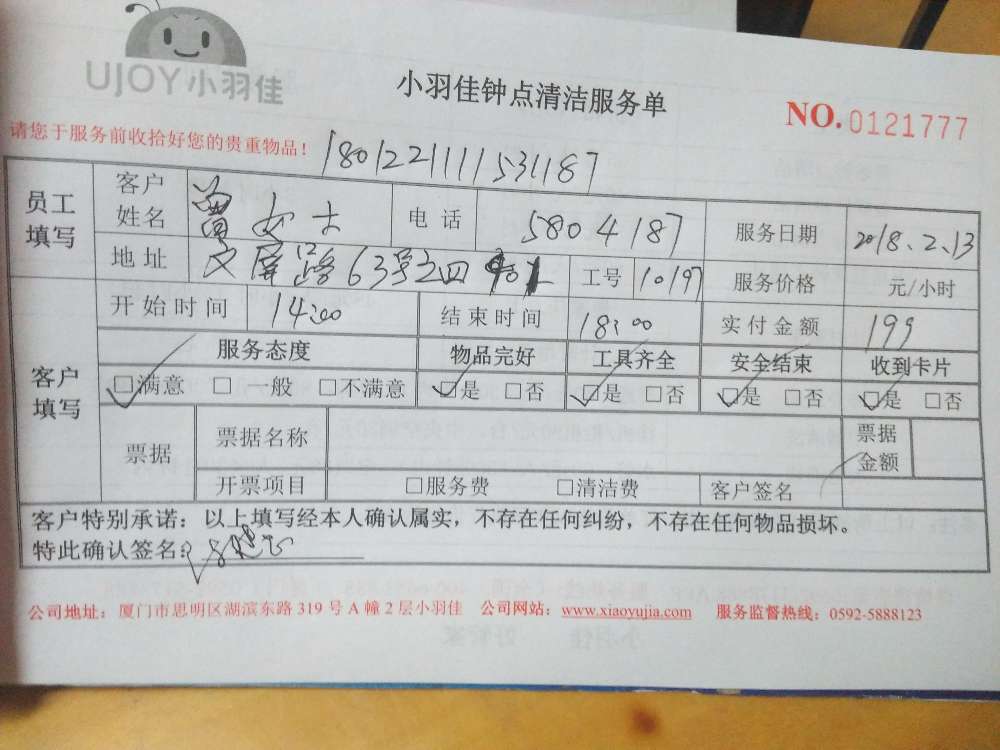 UJOY小羽佳
小羽佳钟点清洁服务单
NO.0121777
请您于服务前收拾好您的贵重物品！
1801221111531187
员工填写 客户姓名 曾女士 电话 5804187 服务日期 2018.2.13
地址 文屏路63号之四 工号 10197 服务价格 元/小时
开始时间 14:00 结束时间 18:00 实付金额 199
客户填写 服务态度 物品完好 工具齐全 安全结束 收到卡片
□满意 □一般 □不满意 □是 □否 □是 □否 □是 □否 □是 □否
票据 票据名称 票据金额
开票项目 □服务费 □清洁费 客户签名
客户特别承诺：以上填写经本人确认属实，不存在任何纠纷，不存在任何物品损坏。
特此确认签名：
公司地址：厦门市思明区湖滨东路319号A幢2层小羽佳 公司网站：www.xiaoyujia.com 服务监督热线：0592-5888123